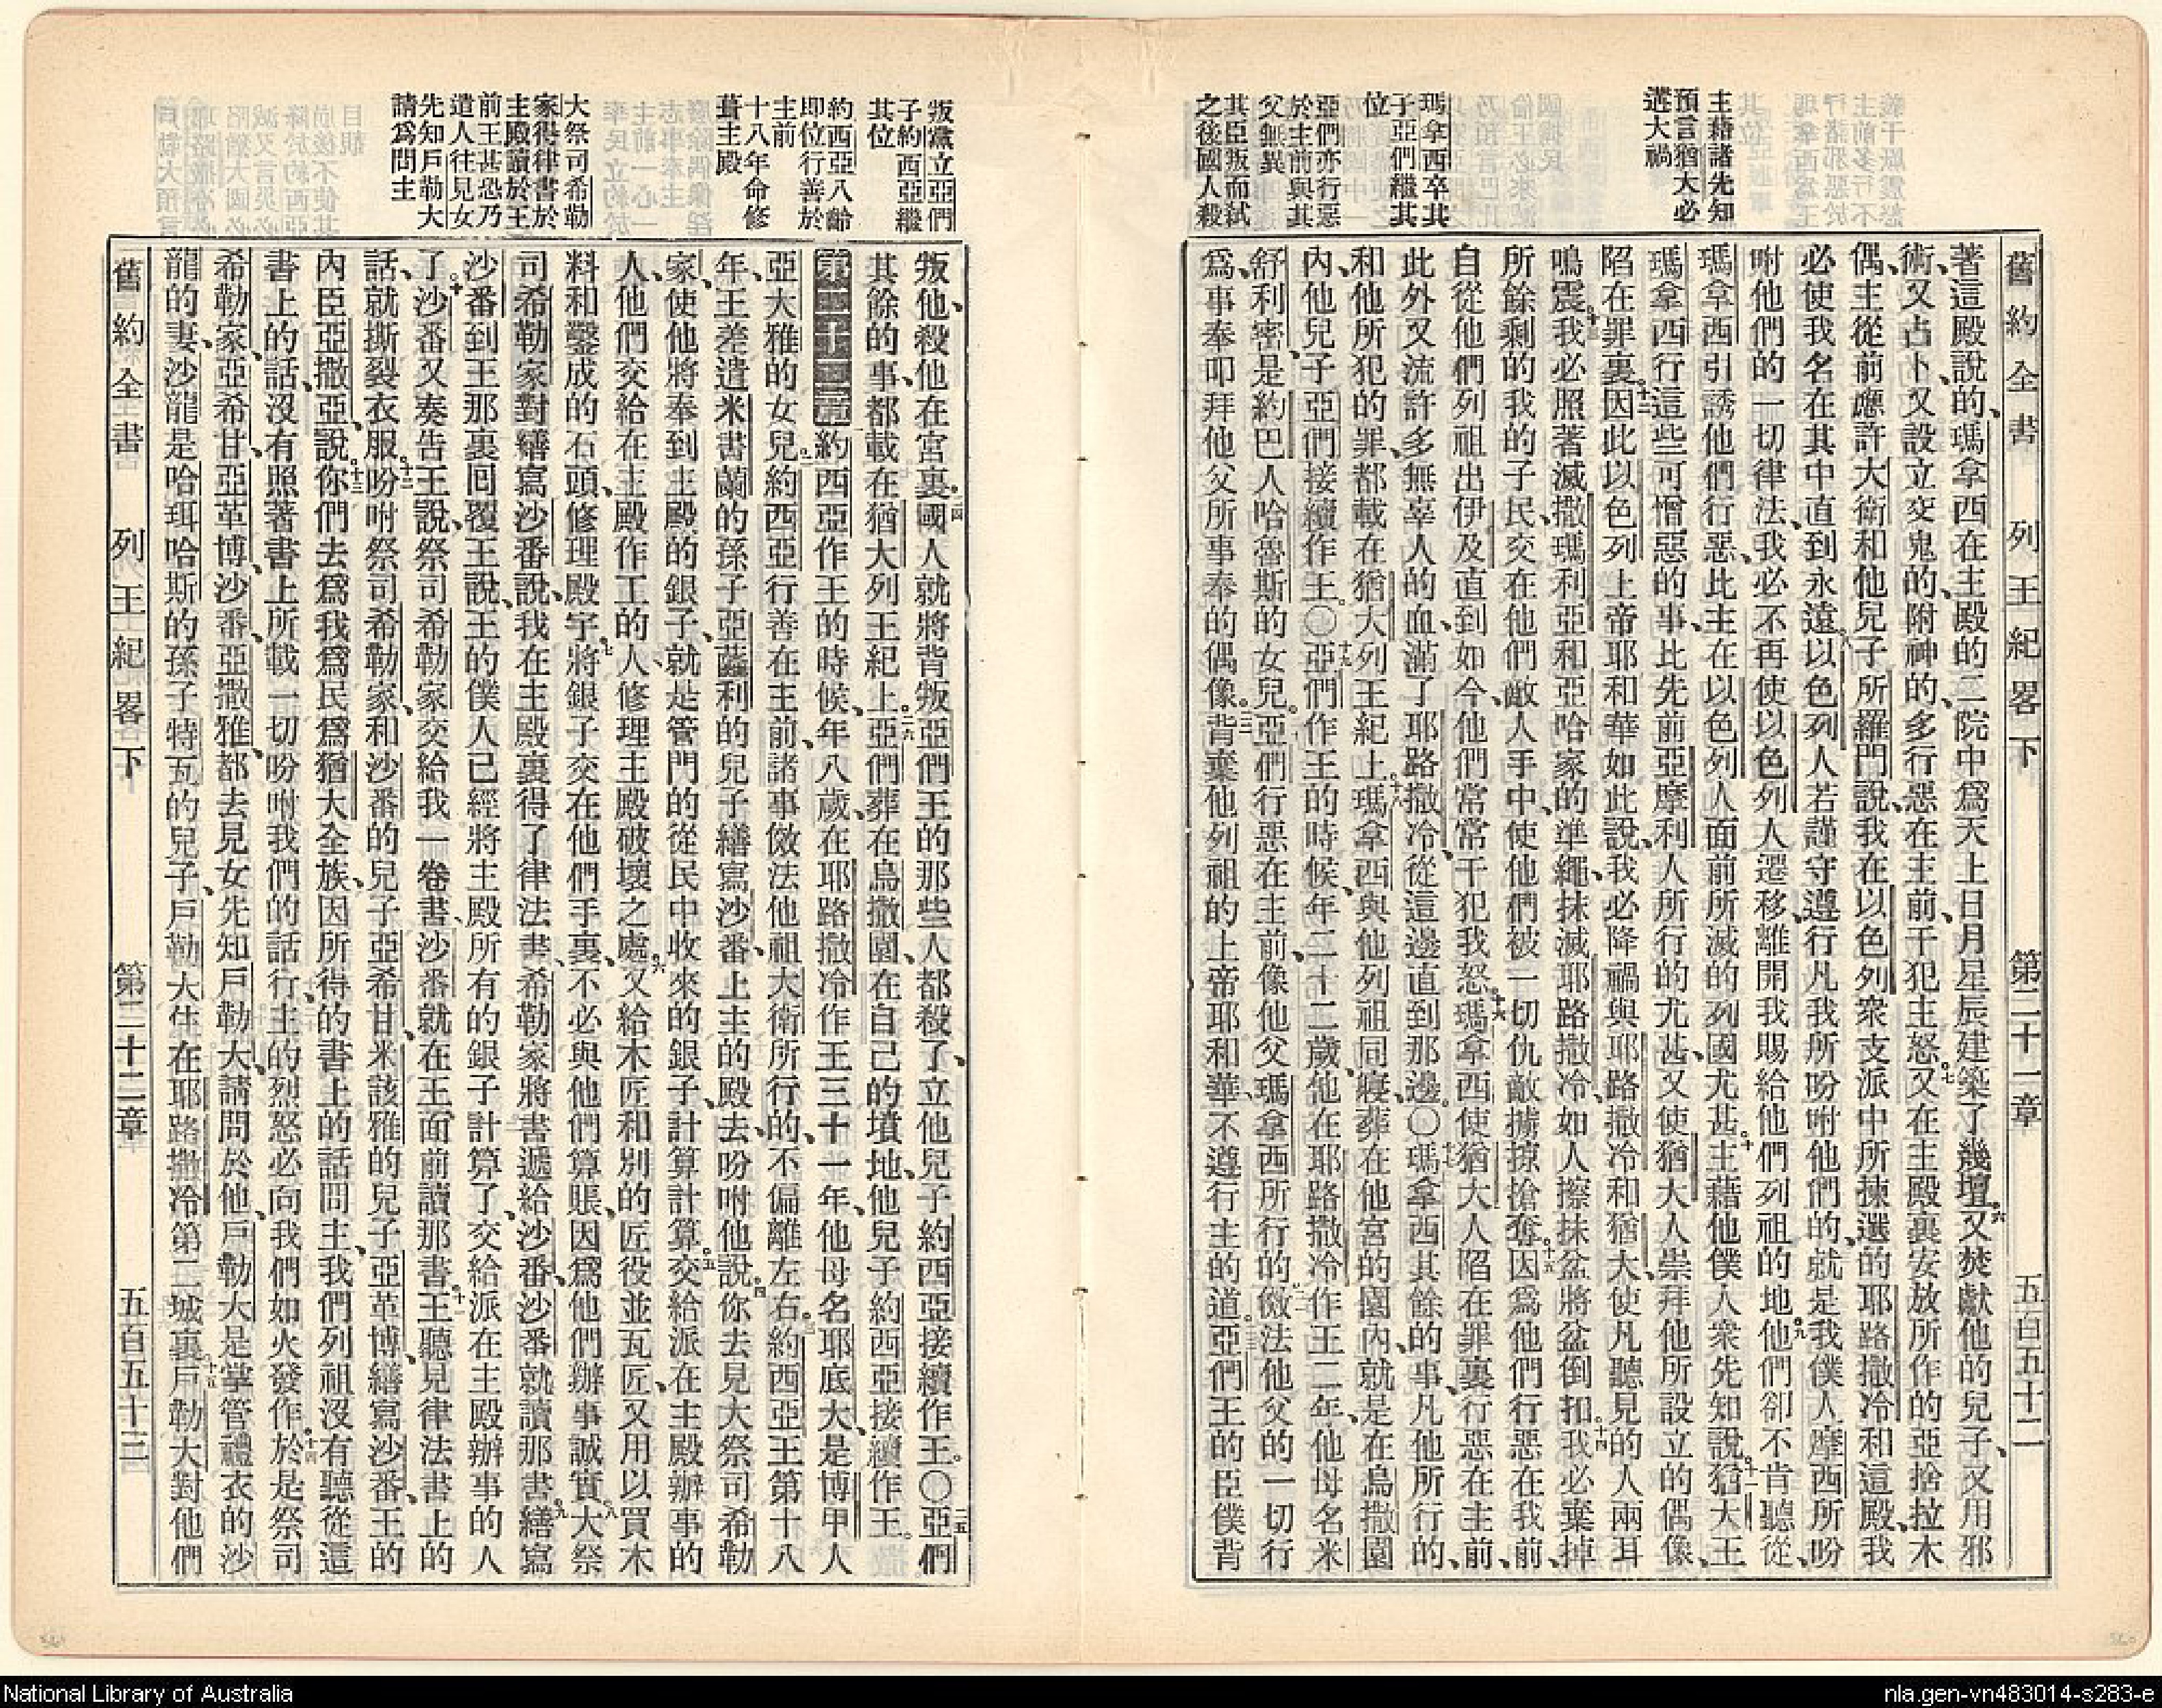 舊約全書 列王紀畧下 第二十一章 五百五十二
主藉諸先知
預言猶大必
遘大禍
瑪拿西卒其
子亞們繼其
位
亞們亦行惡
於主前與其
父無異
其臣叛而弒
之後國人殺
著這殿說的、瑪拿西在主殿的二院中爲天上日月星辰建築了幾壇。六又焚獻他的兒子、又用邪
術、又占卜、又設立交鬼的、附神的、多行惡在主前、干犯主怒。七又在主殿裏安放所作的亞捨拉木
偶、主從前應許大衛和他兒子所羅門說、我在以色列衆支派中所揀選的耶路撒冷和這殿、我
必使我名在其中直到永遠。八以色列人若謹守遵行凡我所吩咐他們的、就是我僕人摩西所吩
咐他們的一切律法、我必不再使以色列人遷移、離開我賜給他們列祖的地。九他們卻不肯聽從、
瑪拿西引誘他們行惡、比主在以色列人面前所滅的列國尤甚。十主藉他僕人衆先知說、十一猶大王
瑪拿西行這些可憎惡的事、比先前亞摩利人所行的尤甚、又使猶大人崇拜他所設立的偶像、
陷在罪裏。十二因此以色列上帝耶和華如此說、我必降禍與耶路撒冷和猶大、使凡聽見的人兩耳
鳴震。十三我必照著滅撒瑪利亞和亞哈家的準繩、抹滅耶路撒冷、如人擦抹盆將盆倒扣。十四我必棄掉
所餘剩的我的子民、交在他們敵人手中、使他們被一切仇敵擄掠搶奪。十五因爲他們行惡在我前、
自從他們列祖出伊及直到如今、他們常常干犯我怒。十六瑪拿西使猶大人陷在罪裏、行惡在主前、
此外又流許多無辜人的血、滿了耶路撒冷、從這邊直到那邊。〇十七瑪拿西其餘的事、凡他所行的、
和他所犯的罪、都載在猶大列王紀上。十八瑪拿西與他列祖同寢、葬在他宮的園內、就是在烏撒園
內、他兒子亞們接續作王。〇十九亞們作王的時候、年二十二歲、他在耶路撒冷作王二年、他母名米
舒利密、是約巴人哈魯斯的女兒。二十亞們行惡在主前、像他父瑪拿西所行的、二一傚法他父的一切行
爲、事奉叩拜他父所事奉的偶像。二二背棄他列祖的上帝耶和華、不遵行主的道。二三亞們王的臣僕背
叛黨立亞們
子約西亞繼
其位
約西亞八齡
即位行善於
主前
十八年命修
葺主殿
大祭司希勒
家得律書於
主殿讀於王
前王甚恐乃
遣人往見女
先知戶勒大
請爲問主
叛他、殺他在宮裏。二四國人就將背叛亞們王的那些人都殺了、立他兒子約西亞接續作王。〇二五亞們
其餘的事、都載在猶大列王紀上。二六亞們葬在烏撒園、在自己的墳地、他兒子約西亞接續作王。
第二十二章 一約西亞作王的時候、年八歲、在耶路撒冷作王三十一年、他母名耶底大、是博甲人
亞大雅的女兒。二約西亞行善在主前、諸事傚法他祖大衛所行的、不偏離左右。三約西亞王第十八
年、王差遣米書蘭的孫子、亞薩利的兒子繕寫沙番、上主的殿去、吩咐他說、四你去見大祭司希勒
家、使他將奉到主殿的銀子、就是管門的從民中收來的銀子、計算計算。五交給派在主殿辦事的
人、他們交給在主殿作工的人、修理主殿破壞之處。六又給木匠和別的匠役並瓦匠、又用以買木
料和鑿成的石頭、修理殿宇。七將銀子交在他們手裏、不必與他們算賬、因爲他們辦事誠實。八大祭
司希勒家對繕寫沙番說、我在主殿裏得了律法書、希勒家將書遞給沙番、沙番就讀那書。九繕寫
沙番到王那裏回覆王說、王的僕人已經將主殿所有的銀子計算了、交給派在主殿辦事的人
了。十沙番又奏告王說、祭司希勒家交給我一卷書、沙番就在王面前讀那書。十一王聽見律法書上的
話、就撕裂衣服。十二吩咐祭司希勒家、和沙番的兒子亞希甘、米該雅的兒子亞革博、繕寫沙番、王的
內臣亞撒亞、說、十三你們去爲我爲民爲猶大全族、因所得的書上的話問主、我們列祖沒有聽從這
書上的話、沒有照著書上所載一切吩咐我們的話行、主的烈怒必向我們如火發作。十四於是祭司
希勒家、亞希甘、亞革博、沙番、亞撒雅、都去見女先知戶勒大、請問於他、戶勒大是掌管禮衣的沙
龍的妻、沙龍是哈珥哈斯的孫子特瓦的兒子、戶勒大住在耶路撒冷第二城裏。十五戶勒大對他們
舊約全書 列王紀畧下 第二十二章 五百五十三
National Library of Australia
nla.gen-vn483014-s283-e